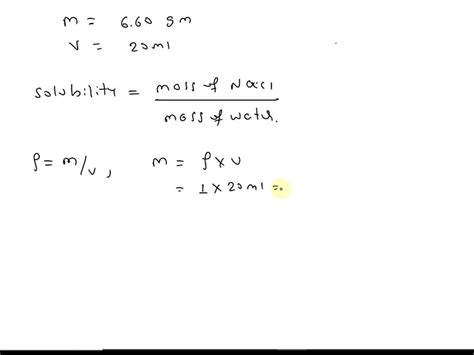 m = 6.60 gm
V = 20ml
solubility = mass of Nacl / mass of water.
ρ = m/v, m = ρ x v
= 1 x 20 ml =